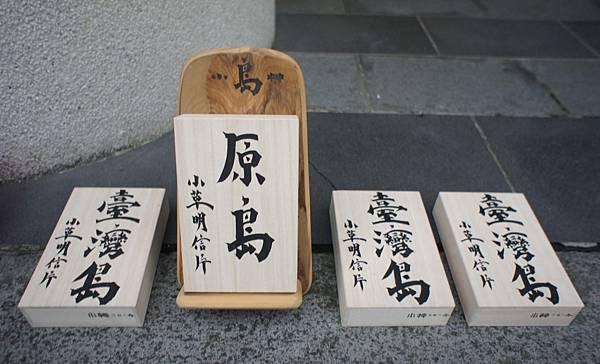 臺灣島
小草明信片
島
原島
小草明信片
臺灣島
小草明信片
臺灣島
小草明信片